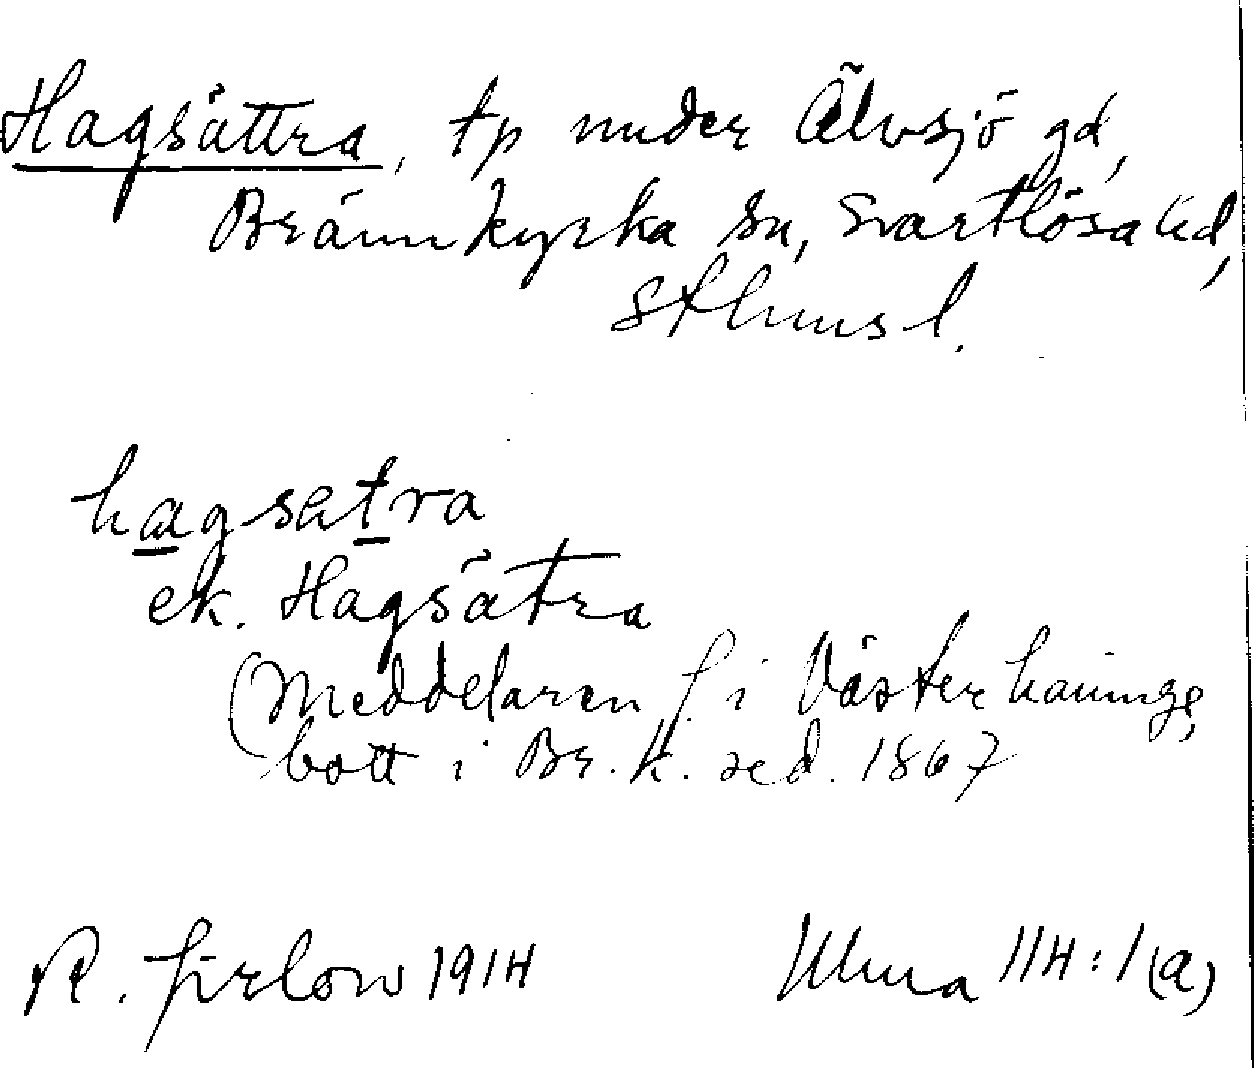 Hagsättra, tp under Älvsjö gd,
Brännkyrka sn, Svartlösa hd,
Sthlms l.
hagsatra
ek. Hagsätra
(Meddelaren f. i Västerhaninge,
bott i Br.k. sed. 1867
R. Jirlow 1914
Ulma 114:1(a)